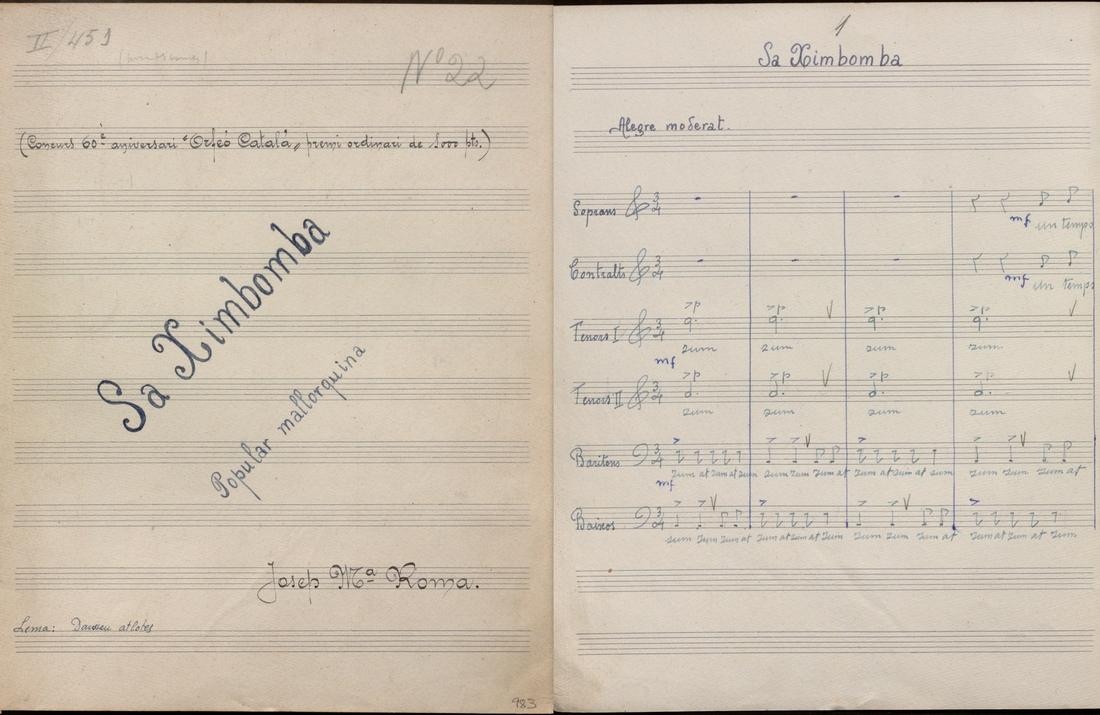 II/451
Nº 22
(Concurs 60è aniversari "Orfeó Català" premi ordinari de 5000 pts.)
Sa Ximbomba
Popular mallorquina
Josep Mª Roma.
Lema: Danseu atlotes
983
1
Sa Ximbomba
Alegre moderat.
Soprans 3/4 mf un temps
Contralts 3/4 mf un temps
Tenors I 3/4 >p >p >p >p
zum zum zum zum
mf
Tenors II 3/4 >p >p >p >p
zum zum zum zum
Baritons 3/4
zum at zum at zum zum zum zum at zum at zum at zum zum zum zum at
mf
Baixos 3/4
zum zum zum at zum at zum at zum zum zum zum at zum at zum at zum